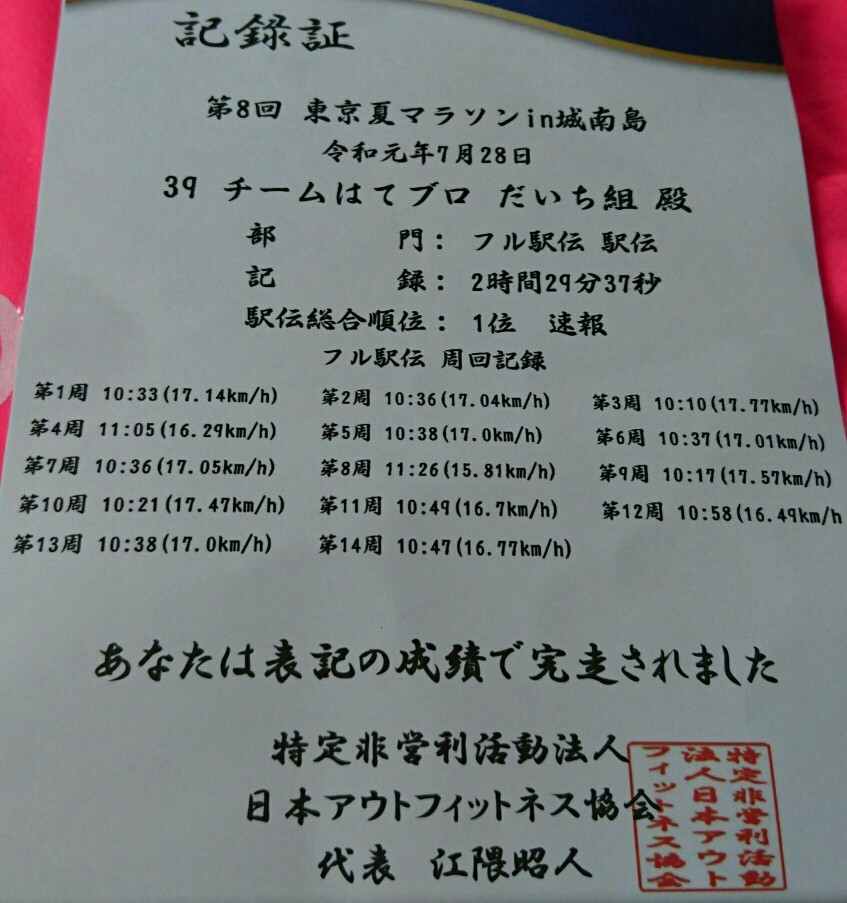 記録証
第8回 東京夏マラソンin城南島
令和元年7月28日
39 チームはてブロ だいち組 殿
部 門： フル駅伝 駅伝
記 録： 2時間29分37秒
駅伝総合順位： 1位 速報
フル駅伝 周回記録
第1周 10:33(17.14km/h) 第2周 10:36(17.04km/h) 第3周 10:10(17.77km/h)
第4周 11:05(16.29km/h) 第5周 10:38(17.0km/h) 第6周 10:37(17.01km/h)
第7周 10:36(17.05km/h) 第8周 11:26(15.81km/h) 第9周 10:17(17.57km/h)
第10周 10:21(17.47km/h) 第11周 10:49(16.7km/h) 第12周 10:58(16.49km/h
第13周 10:38(17.0km/h) 第14周 10:47(16.77km/h)
あなたは表記の成績で完走されました
特定非営利活動法人
日本アウトフィットネス協会
代表 江隈昭人
特定非営利活動
法人日本アウト
フィットネス協会